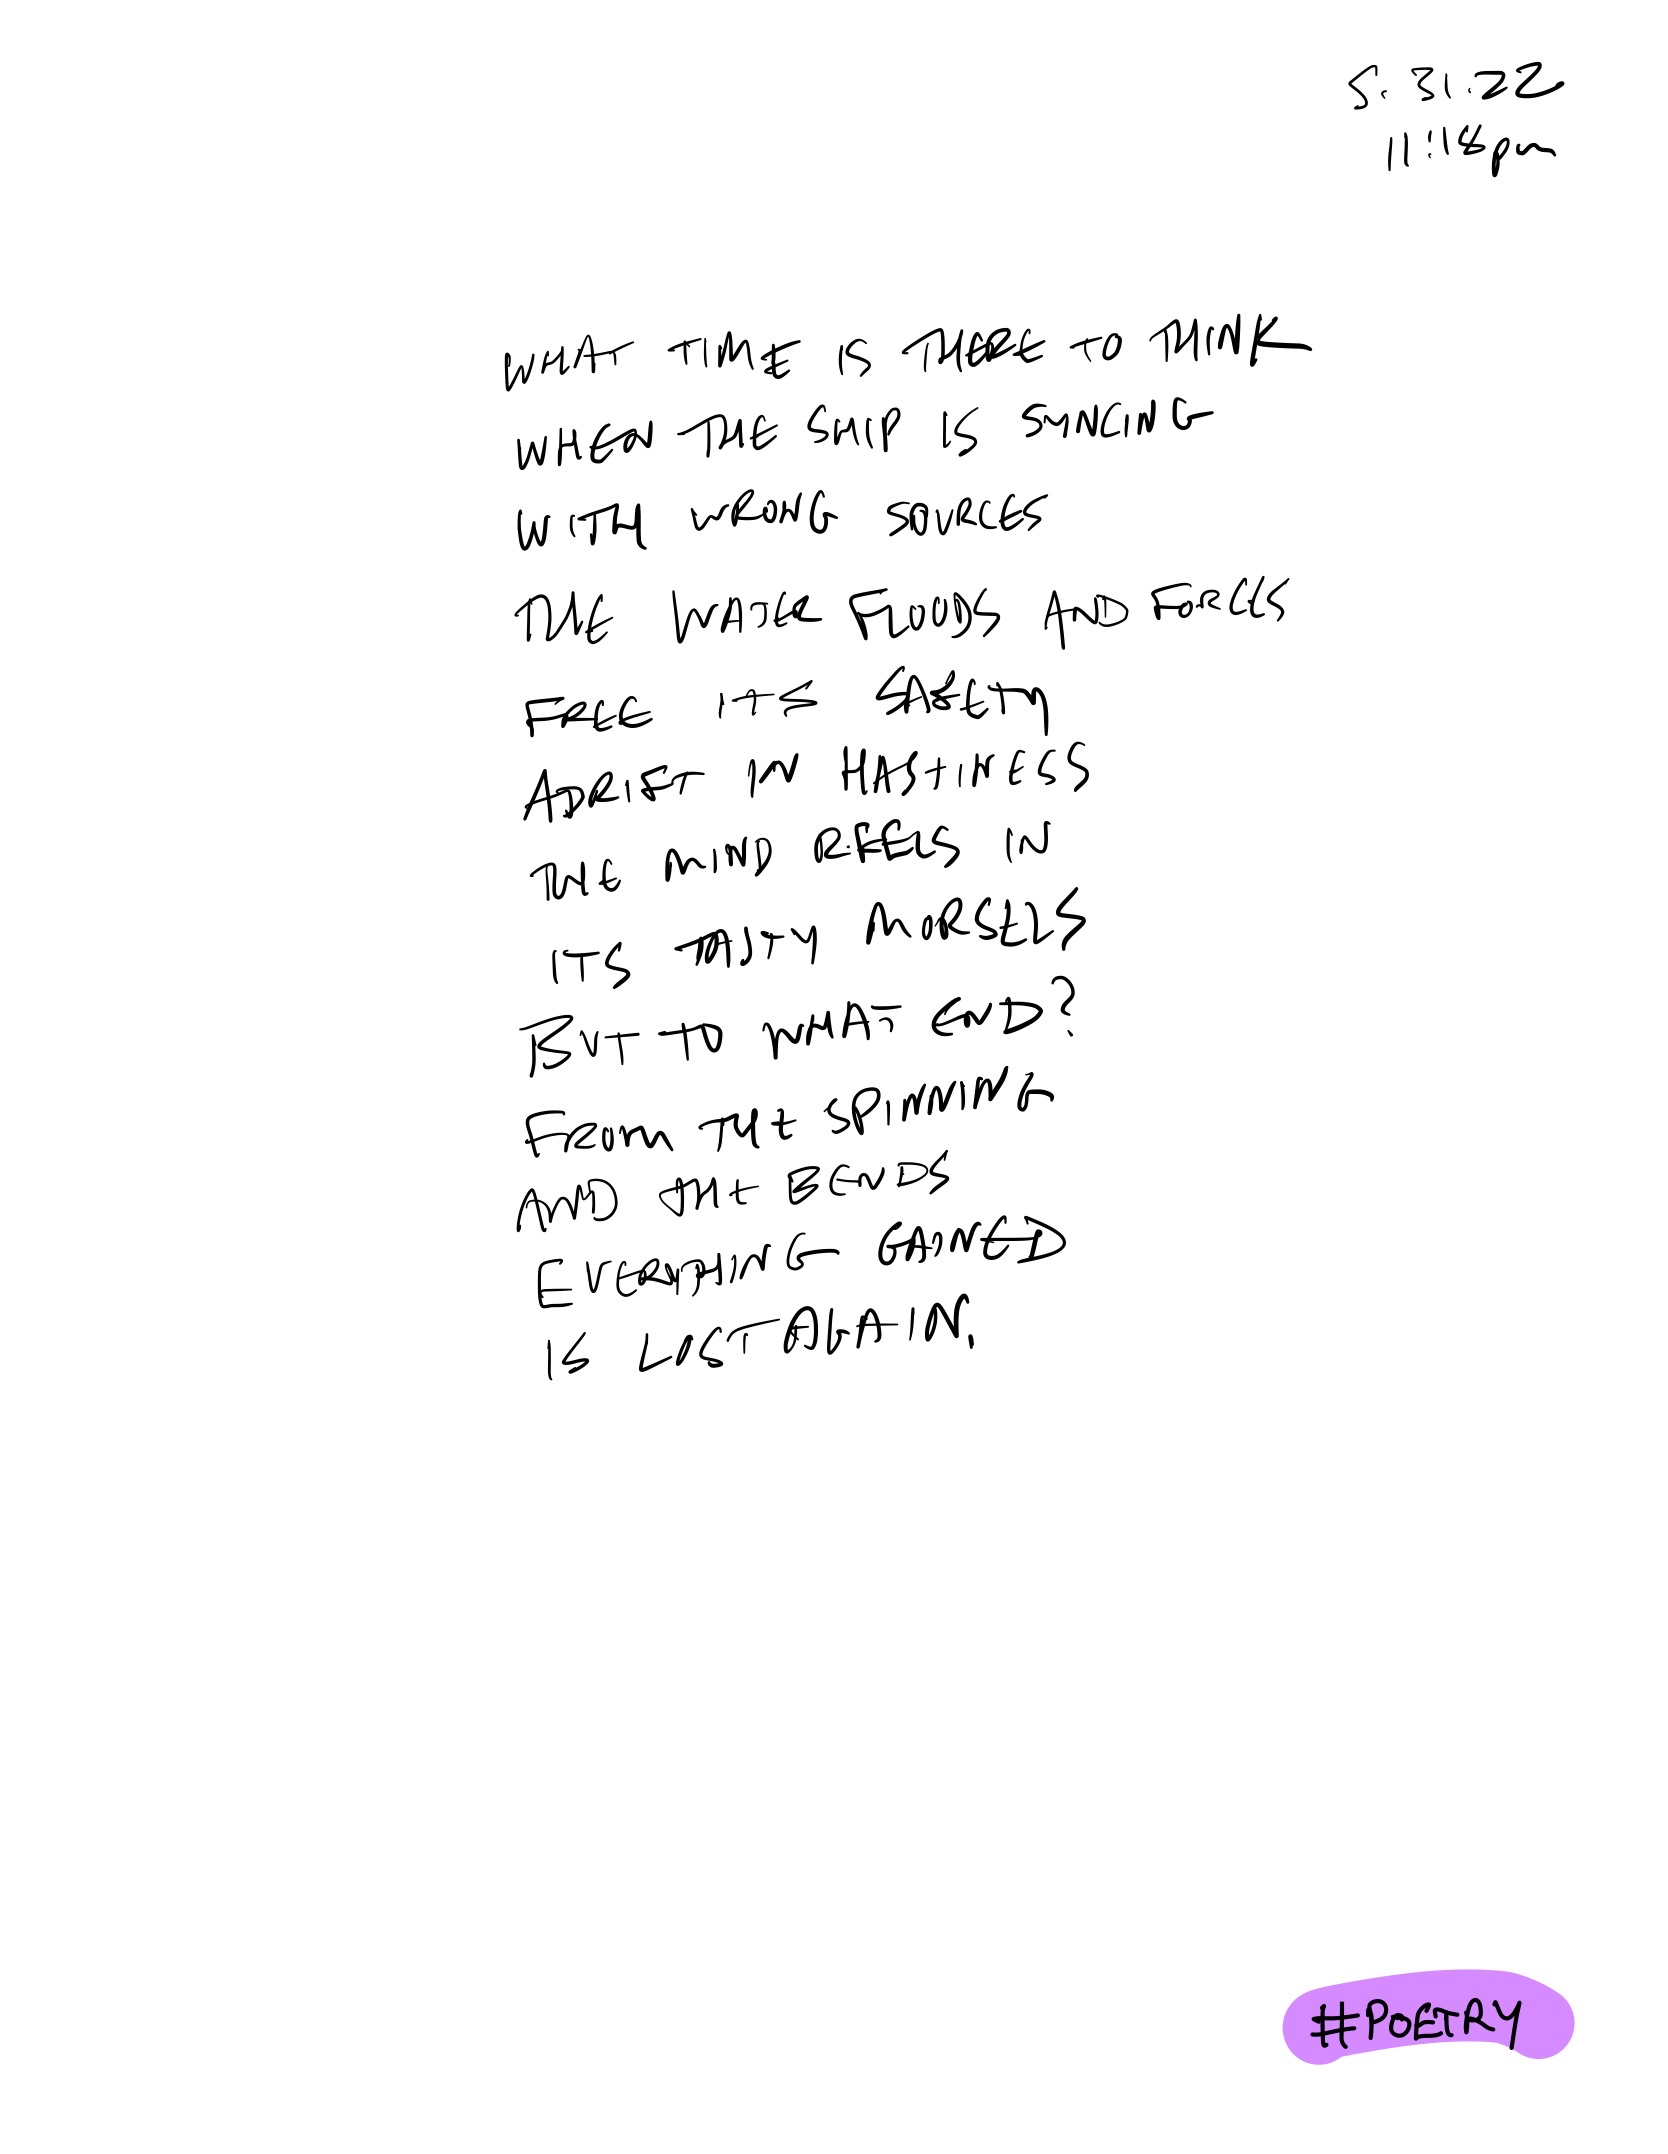 5.31.22
11:18pm
WHAT TIME IS THERE TO THINK
WHEN THE SHIP IS SYNCING
WITH WRONG SOURCES
THE WATER FLOODS AND FORCES
FREE ITS SAFETY
ADRIFT IN HASTINESS
THE MIND REELS IN
ITS TASTY MORSELS
BUT TO WHAT END?
FROM THE SPINNING
AND THE BENDS
EVERYTHING GAINED
IS LOST AGAIN.
#POETRY